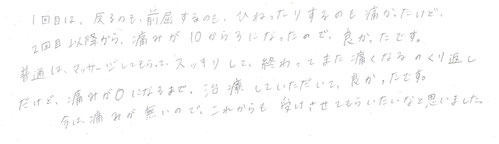 1回目は、反るのも、前屈するのも、ひねったりするのも痛かったけど、
2回目以降から、痛みが10から3になったので、良かったです。
普通は、マッサージしてもらって、スッキリして、終わってまた痛くなるのくり返し
だけど、痛みが0になるまで、治療していただいて、良かったです。
今は、痛みが無いので、これからも受けさせてもらいたいなと思いました。